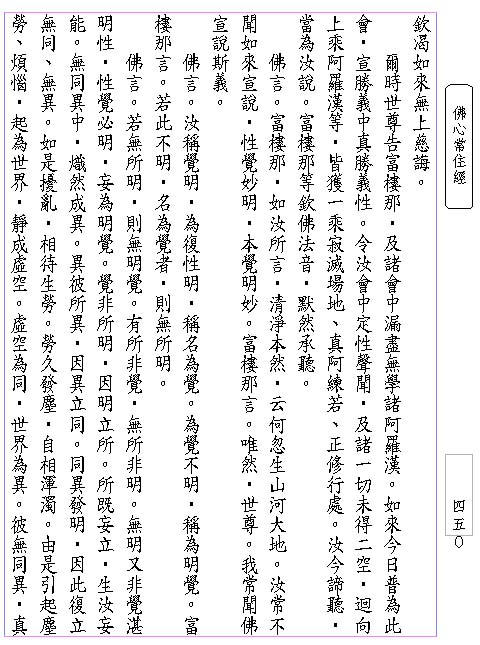 佛心常住經
四五○
欽渴如來無上慈誨。
爾時世尊告富樓那，及諸會中漏盡無學諸阿羅漢。如來今日普為此
會，宣勝義中真勝義性。令汝會中定性聲聞，及諸一切未得二空，迴向
上乘阿羅漢等，皆獲一乘寂滅場地、真阿練若、正修行處。汝今諦聽，
當為汝說。富樓那等欽佛法音，默然承聽。
佛言。富樓那，如汝所言，清淨本然，云何忽生山河大地。汝常不
聞如來宣說，性覺妙明，本覺明妙。富樓那言。唯然，世尊。我常聞佛
宣說斯義。
佛言。汝稱覺明，為復性明，稱名為覺。為覺不明，稱為明覺。富
樓那言。若此不明，名為覺者，則無所明。
佛言。若無所明，則無明覺。有所非覺，無所非明。無明又非覺湛
明性，性覺必明，妄為明覺。覺非所明，因明立所。所既妄立，生汝妄
能。無同異中，熾然成異。異彼所異，因異立同。同異發明，因此復立
無同、無異。如是擾亂，相待生勞。勞久發塵，自相渾濁。由是引起塵
勞、煩惱，起為世界，靜成虛空。虛空為同，世界為異。彼無同異，真